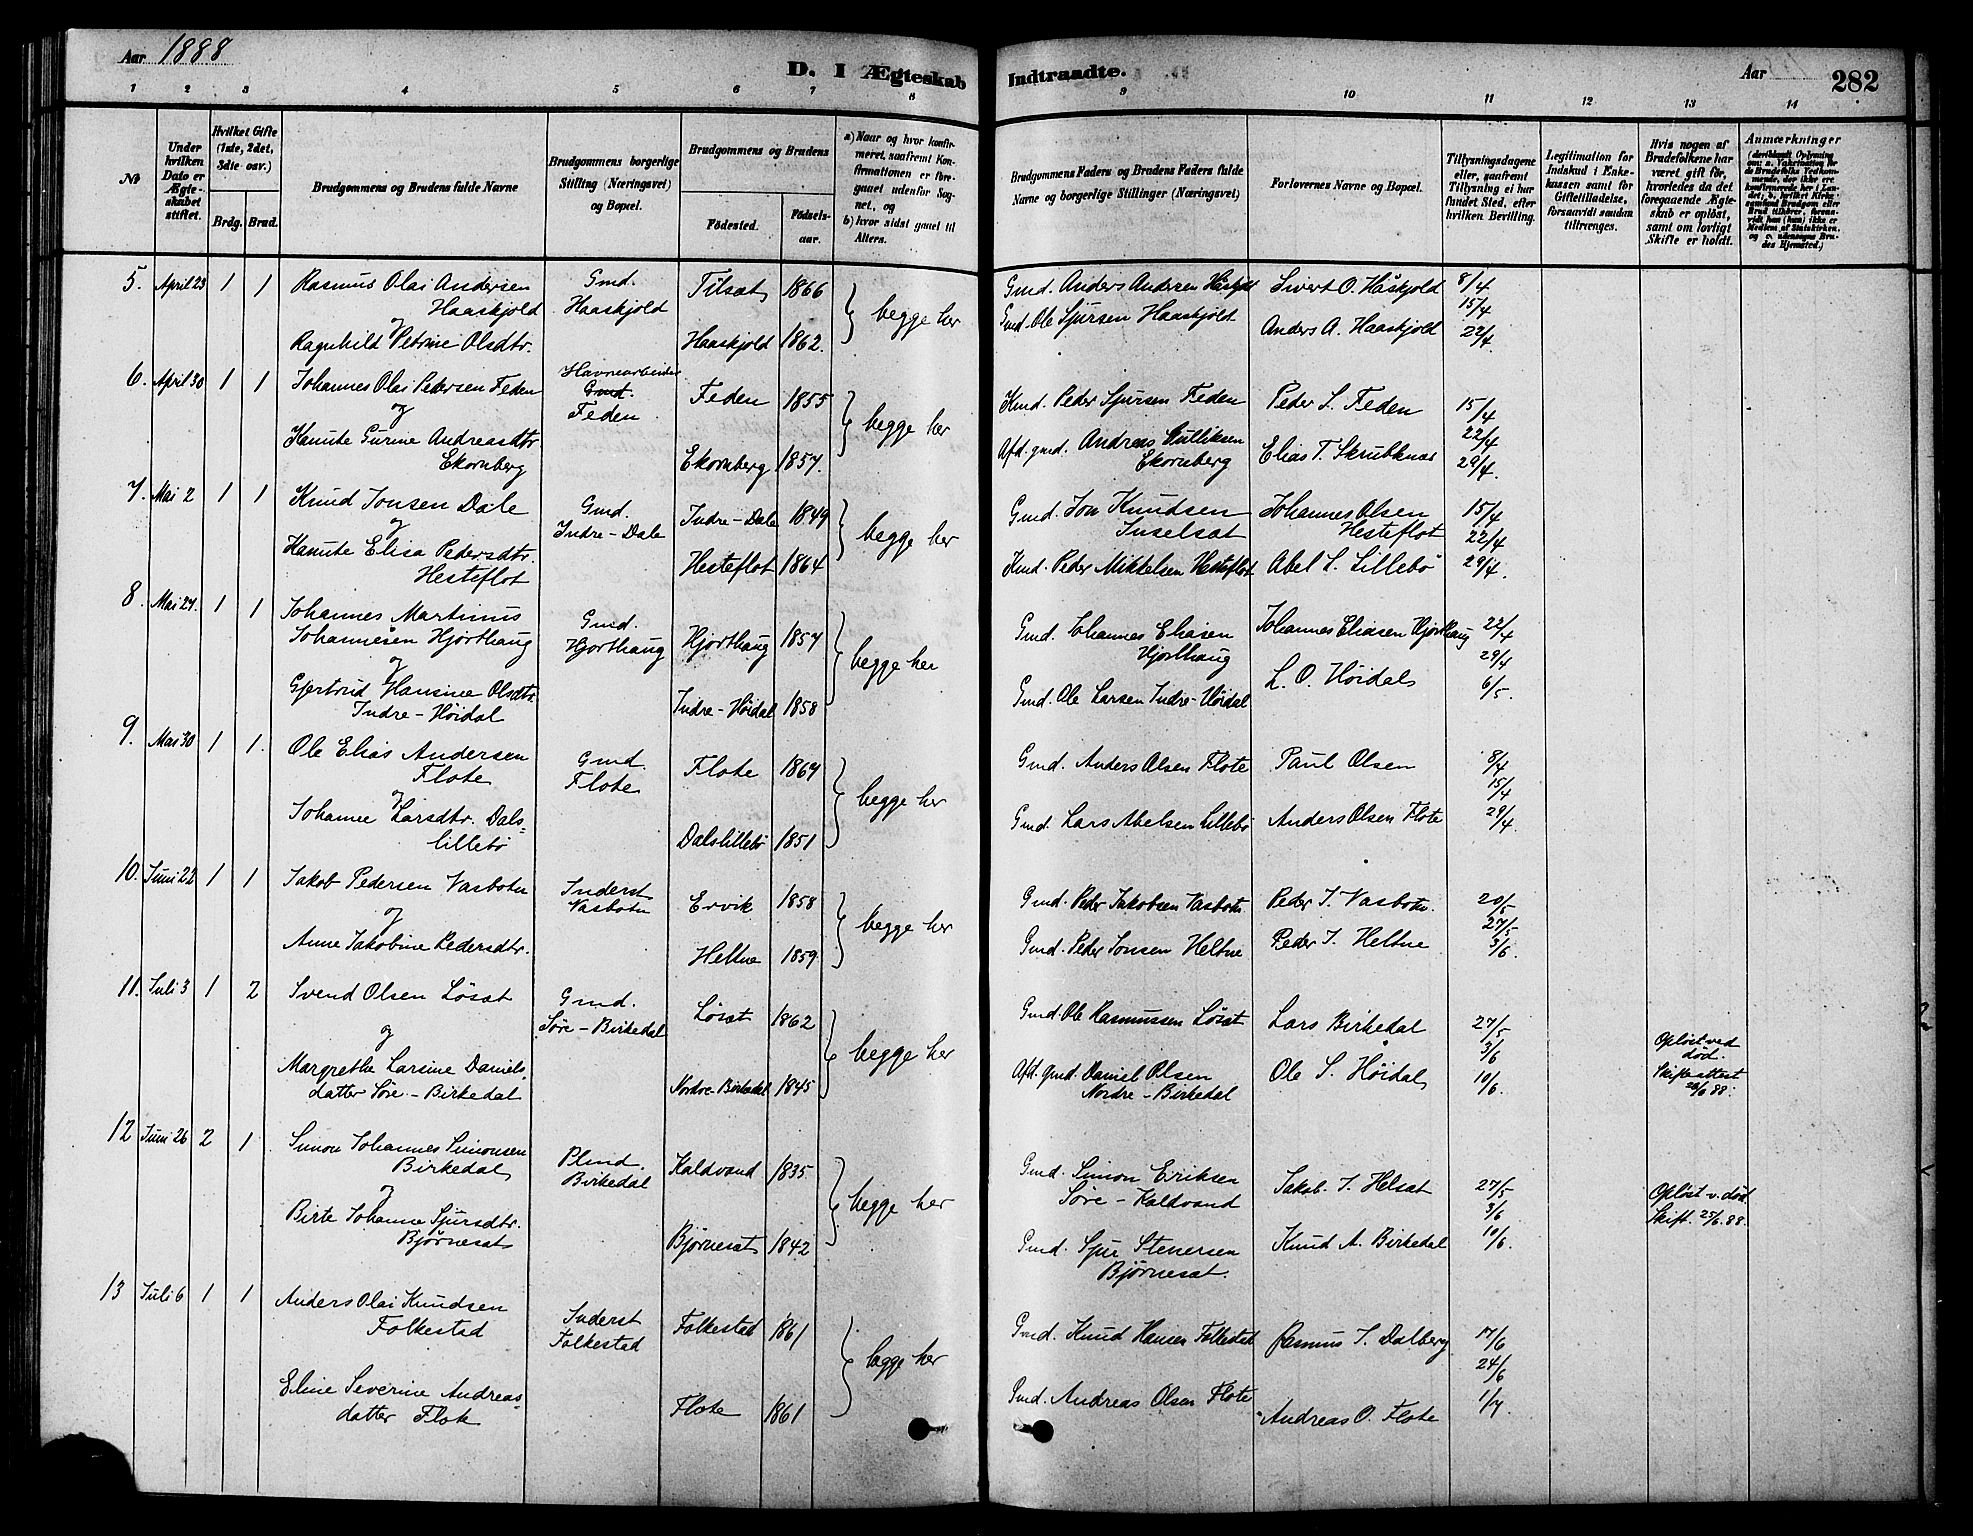 Aar 1888
D. I Ægteskab Indtraadte.
Aar
282
1 2 3 4 5 6 7 8 9 10 11 12 13 14
No
Under hvilken Dato er Ægteskabet stiftet.
Hvilket Gifte (1ste, 2det, 3die osv.)
Brdg. Brud.
Brudgommens og Brudens fulde Navne
Brudgommens borgerlige Stilling (Næringsvei) og Bopæl.
Brudgommens og Brudens
Födested. Födselsaar.
a) Naar og hvor konfirmeret, saafremt Konfirmationen er foregaaet udenfor Sognet, og
b) hvor sidst gaaet til Alters.
Brudgommens Faders og Brudens Faders fulde Navne og borgerlige Stillinger (Næringsvei)
Forlovernes Navne og Bopæl.
Tillysningsdagene eller, saafremt Tillysning ei har fundet Sted, efter hvilken Bevilling.
Legitimation for Indskud i Enkekassen samt for Giftetilladelse, forsaavidt saadan tiltrænges.
Hvis nogen af Brudefolkene har været gift för, hvorledes da det foregaaende Ægteskab er oplöst, samt om lovligt Skifte er holdt.
Anmærkninger
5. April 23 1 1 Rasmus Olai Andersen Gmd. Tilsat 1866 Gmd. Anders Andersen Haaskjold Sivert O. Håskjold 8/4
Haaskjold Haaskjold } begge her 15/4
og Gmd. Ole Sjursen Haaskjold Anders A. Haaskjold 22/4.
Ragnhild Petrine Olsdtr. Haaskjold 1862.
6. April 30 1 1 Johannes Olai Pedersen Feden Havnearbeider Feden 1855 Kmd. Peder Sjursen Feden Peder S. Feden 15/4
og Gmd. Feden } begge her 22/4
Hanute Gurine Andreasdtr. Afd. gmd. Andreas Gulliksen Elias T. Skrubknas 29/4.
Ekornberg Ekornberg 1857. Ekornberg
7. Mai 2 1 1 Knud Jonsen Dale Gmd. Indre-Dale 1849 Gmd. Jon Knudsen Johannes Olsen 15/4
og Indre-Dale } begge her Inselsat Hesteflot 22/4
Hanute Elisa Pedersdtr. Hesteflot 1864 Kmd. Peder Mikkelsen Hesteflot Abel S. Lillebö 29/4.
Hesteflot
8. Mai 27. 1 1 Johannes Martinus Gmd. Hjorthaug 1857 Gmd. Johannes Eliasen Johannes Eliasen Hjorthaug 22/4
Johannesen Hjorthaug Hjorthaug } begge her Hjorthaug 29/4
og
Gjertrud Hansine Olsdtr. Indre-Höidal 1858 Gmd. Ole Larsen Indre-Höidal L. O. Höidal 6/5.
Indre-Höidal
9. Mai 30 1 1. Ole Elias Andersen Gmd. Flote 1867 Gmd. Anders Olsen Flote Paul Olsen 8/4
Flote Flote } begge her 15/4
og
Johanne Larsdtr. Dals- Dalslillebö 1851 Gmd. Lars Abelsen Lillebö Anders Olsen Flote 29/4.
lillebö
10. Juni 22 1 1 Jakob Pedersen Vasbotn Inderst Ervik 1858 Gmd. Peder Jakobsen Vasbotn Peder J. Vasbotn. 20/5
og Vasbotn } begge her 27/5
Anne Jakobine Pedersdtr. Heltne 1859. Gmd. Peder Jonsen Heltne Peder J. Heltne 3/6.
11. Juli 3 1 2 Svend Olsen Løsæt Gmd. Løsæt 1862 Gmd. Ole Rasmussen Løsæt Lars Birkedal 27/5
og Søre-Birkedal } begge her 3/6 Opløst ved død.
Margrethe Larsine Daniels- Nordre-Birkedal 1845 Afd. gmd. Daniel Olsen Ole S. Höidal 10/6. Skifteattest
datter Søre-Birkedal Nordre-Birkedal 88.
12 Juni 26 2 1 Simon Johannes Simonsen Plmd. Kaldvand 1835 Gmd. Simon Eriksen Jakob J. Helsæt 27/5
Birkedal Birkedal } begge her Søre-Kaldvand 3/6 Opløst v. død
og Skift. 25/6.88.
Birte Johanne Sjursdtr. Bjørnesat 1842 Gmd. Sjur Stenersen Knud A. Birkedal 10/6.
Bjørnesat Bjørnesat.
13 Juli 6 1 1 Anders Olai Knudsen Inderst Folkestad 1861 Gmd. Knud Hansen Folkestad Rasmus J. Dalberg 17/6
Folkestad Folkestad } begge her 24/6
Eline Severine Andreas- Flote 1861 Gmd. Andreas Olsen Flote Andreas O. Flote 1/7.
datter Flote